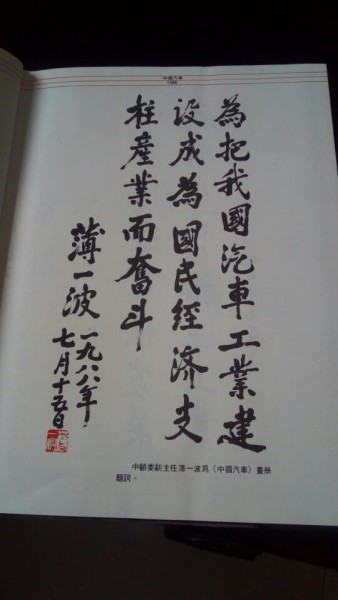 中國汽車
1988
為把我國汽車工業建
设成為國民經济支
柱產業而奮斗
薄一波 一九八八年
七月十五日
中顧委副主任薄一波爲《中國汽車》畫册
題詞。